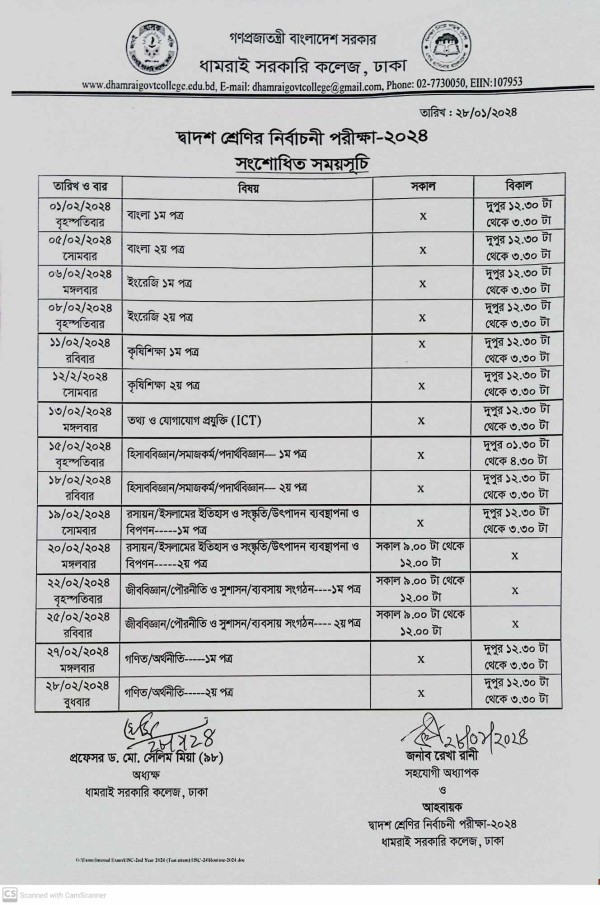 গণপ্রজাতন্ত্রী বাংলাদেশ সরকার
ধামরাই সরকারি কলেজ, ঢাকা
www.dhamraigovtcollege.edu.bd, E-mail: dhamraigovtcollege@gmail.com, Phone: 02-7730050, EIIN:107953
তারিখ : ২৮/০১/২০২৪
দ্বাদশ শ্রেণির নির্বাচনী পরীক্ষা-২০২৪
সংশোধিত সময়সূচি
তারিখ ও বার বিষয় সকাল বিকাল
০১/০২/২০২৪ বাংলা ১ম পত্র x দুপুর ১২.৩০ টা
বৃহস্পতিবার থেকে ৩.৩০ টা
০৫/০২/২০২৪ বাংলা ২য় পত্র x দুপুর ১২.৩০ টা
সোমবার থেকে ৩.৩০ টা
০৬/০২/২০২৪ ইংরেজি ১ম পত্র x দুপুর ১২.৩০ টা
মঙ্গলবার থেকে ৩.৩০ টা
০৮/০২/২০২৪ ইংরেজি ২য় পত্র x দুপুর ১২.৩০ টা
বৃহস্পতিবার থেকে ৩.৩০ টা
১১/০২/২০২৪ কৃষিশিক্ষা ১ম পত্র x দুপুর ১২.৩০ টা
রবিবার থেকে ৩.৩০ টা
১২/২/২০২৪ কৃষিশিক্ষা ২য় পত্র x দুপুর ১২.৩০ টা
সোমবার থেকে ৩.৩০ টা
১৩/০২/২০২৪ তথ্য ও যোগাযোগ প্রযুক্তি (ICT) x দুপুর ১২.৩০ টা
মঙ্গলবার থেকে ৩.৩০ টা
১৫/০২/২০২৪ হিসাববিজ্ঞান/সমাজকর্ম/পদার্থবিজ্ঞান--- ১ম পত্র x দুপুর ০১.৩০ টা
বৃহস্পতিবার থেকে ৪.৩০ টা
১৮/০২/২০২৪ হিসাববিজ্ঞান/সমাজকর্ম/পদার্থবিজ্ঞান--- ২য় পত্র x দুপুর ১২.৩০ টা
রবিবার থেকে ৩.৩০ টা
১৯/০২/২০২৪ রসায়ন/ইসলামের ইতিহাস ও সংস্কৃতি/উৎপাদন ব্যবস্থাপনা ও x দুপুর ১২.৩০ টা
সোমবার বিপণন-----১ম পত্র থেকে ৩.৩০ টা
২০/০২/২০২৪ রসায়ন/ইসলামের ইতিহাস ও সংস্কৃতি/উৎপাদন ব্যবস্থাপনা ও সকাল ৯.০০ টা থেকে x
মঙ্গলবার বিপণন-----২য় পত্র ১২.০০ টা
২২/০২/২০২৪ জীববিজ্ঞান/পৌরনীতি ও সুশাসন/ব্যবসায় সংগঠন----১ম পত্র সকাল ৯.০০ টা থেকে x
বৃহস্পতিবার ১২.০০ টা
২৫/০২/২০২৪ জীববিজ্ঞান/পৌরনীতি ও সুশাসন/ব্যবসায় সংগঠন---- ২য় পত্র সকাল ৯.০০ টা থেকে x
রবিবার ১২.০০ টা
২৭/০২/২০২৪ গণিত/অর্থনীতি-----১ম পত্র x দুপুর ১২.৩০ টা
মঙ্গলবার থেকে ৩.৩০ টা
২৮/০২/২০২৪ গণিত/অর্থনীতি-----২য় পত্র x দুপুর ১২.৩০ টা
বুধবার থেকে ৩.৩০ টা
প্রফেসর ড. মো. সেলিম মিয়া (৯৮)
অধ্যক্ষ
ধামরাই সরকারি কলেজ, ঢাকা
২৮/০১/২০২৪
জনাব রেখা রানী
সহযোগী অধ্যাপক
ও
আহবায়ক
দ্বাদশ শ্রেণির নির্বাচনী পরীক্ষা-২০২৪
ধামরাই সরকারি কলেজ, ঢাকা
CS Scanned with CamScanner